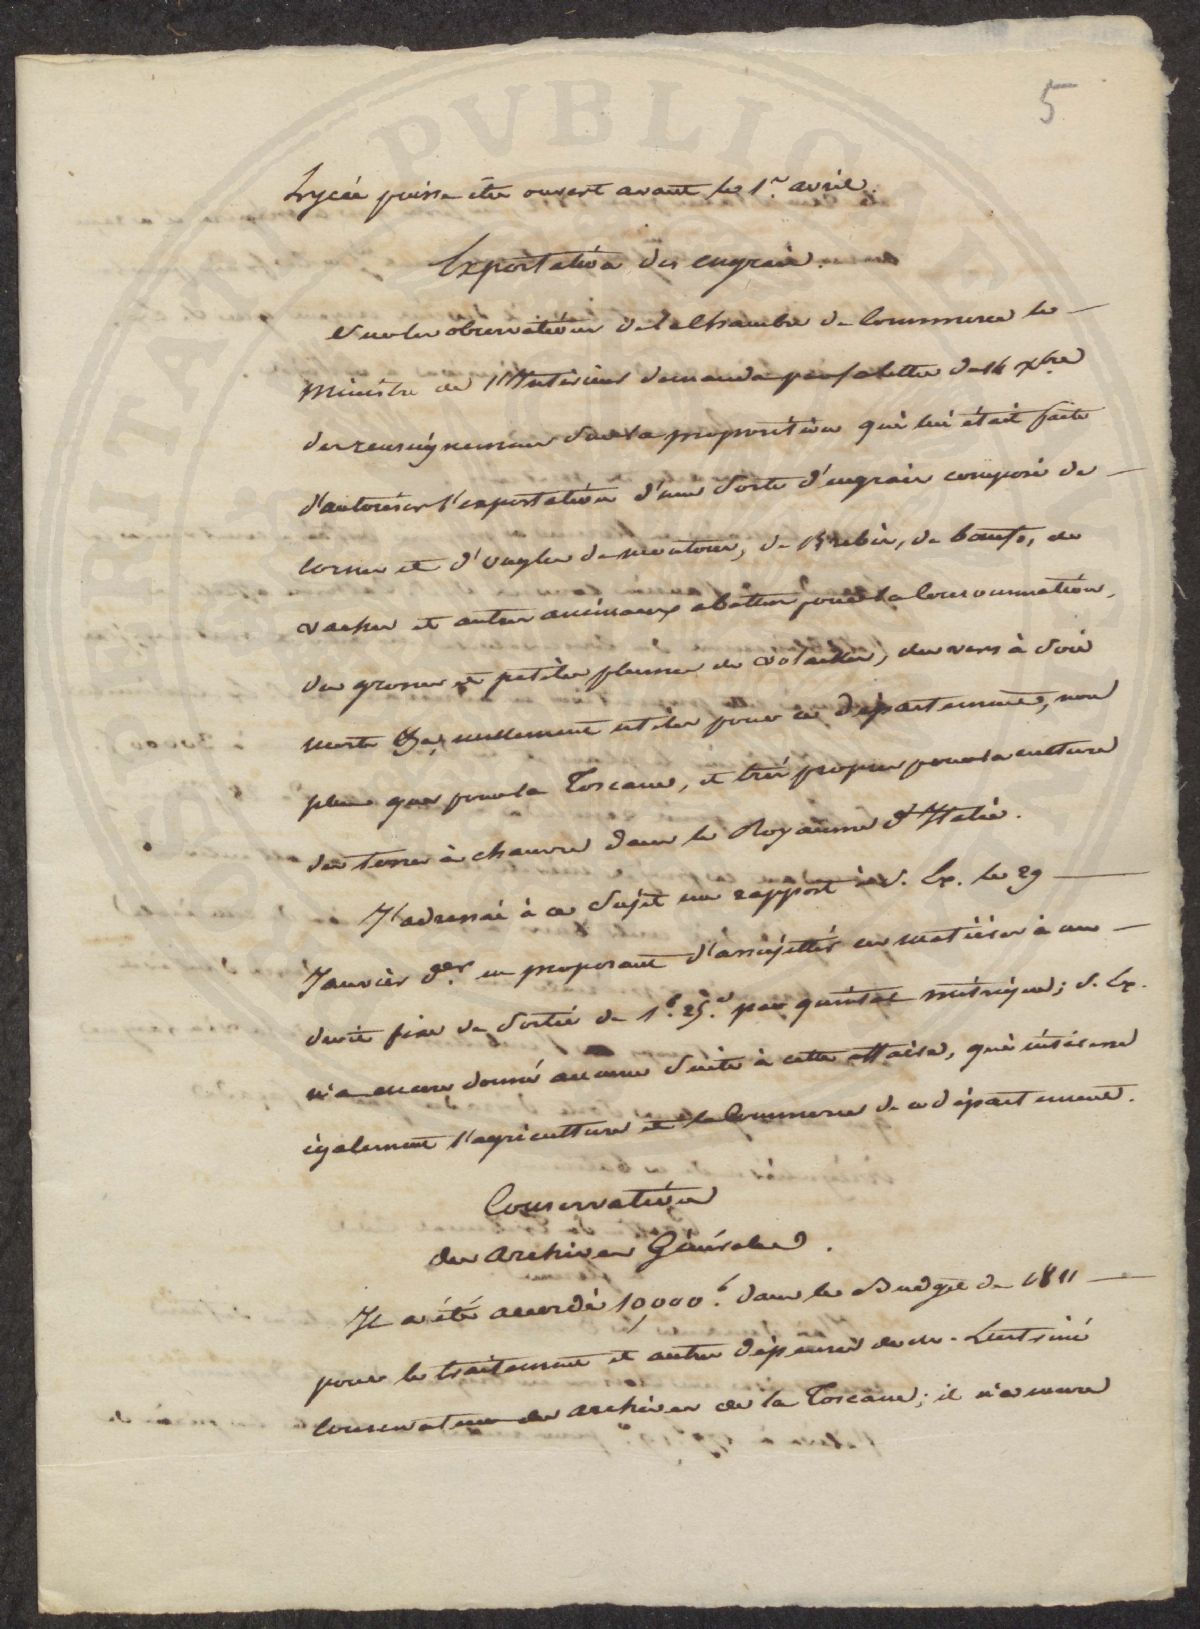 5
Lycée puisse être ouvert avant le 1er avril.
Exportation des engrais.
Sur les observations de la Chambre de Commerce le
Ministre de l'Intérieur demanda par sa lettre du 14 Xbre
des renseignemens sur la proposition qui lui était faite
d'autoriser l'exportation d'une sorte d'engrais composé de
cornes et d'ongles de moutons, de Brebis, de bœufs, de
vaches et autres animaux abattus pour la Consommation,
des grosses et petites plumes de volailles, des vers à soie
morts &a, nullement utiles pour ce département, non
plus que pour la Toscane, et très propres pour la culture
des terres à chanvre dans le Royaume d'Italie.
J'adressai à ce sujet un rapport à S. Ex. le 29
Janvier der. en proposant d'assujettir ces matières à un
droit fixe de sortie de 1f. 25c. par quintal métrique; S. Ex.
n'a encore donné aucune suite à cette affaire, qui intéresse
également l'agriculture et le Commerce de ce département.
Conservation
des Archives Générales.
Il a été accordé 10,000f. dans le Budget de 1811
pour le traitement et autres dépenses de M. Lustrini
Conservateur des archives de la Toscane; il n'a encore
PVBLICAE